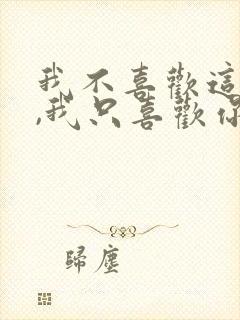 我不喜歡這
,我只喜歡你
歸塵